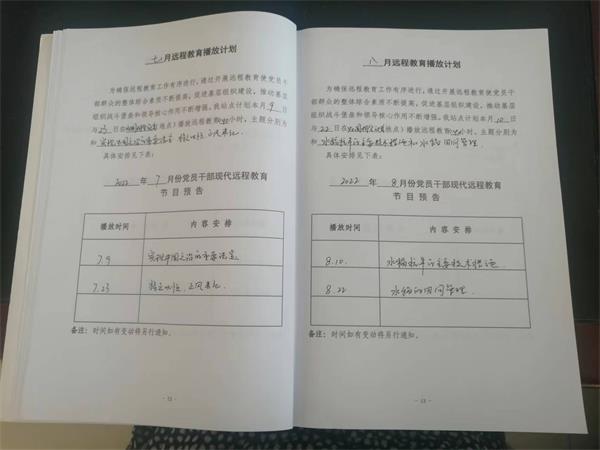 七 月远程教育播放计划
为确保远程教育工作有序进行,通过开展远程教育使党员干
部群众的整体综合素质不断提高,促进基层组织建设,推动基层
组织战斗堡垒和领导核心作用不断增强,我站点计划本月 9 日
与 23 日在 地点)播放远程教育 小时,主题分别为
和
具体安排见下表:
2022 年 7 月份党员干部现代远程教育
节目预告
播放时间 内容安排
7.9 实现中国之治的重要法宝
7.23 正风肃纪.
备注:时间如有变动将另行通知。
- 12 -
八 月远程教育播放计划
为确保远程教育工作有序进行,通过开展远程教育使党员干
部群众的整体综合素质不断提高,促进基层组织建设,推动基层
组织战斗堡垒和领导核心作用不断增强,我站点计划本月 10 日
与 22 日在 地点)播放远程教育 小时,主题分别为
和 水稻 主要技术措施和水稻田间管理.
具体安排见下表:
2022 年 8 月份党员干部现代远程教育
节目预告
播放时间 内容安排
8.10. 水稻 主要技术措施.
8.22 水稻的田间管理.
备注:时间如有变动将另行通知。
- 13 -